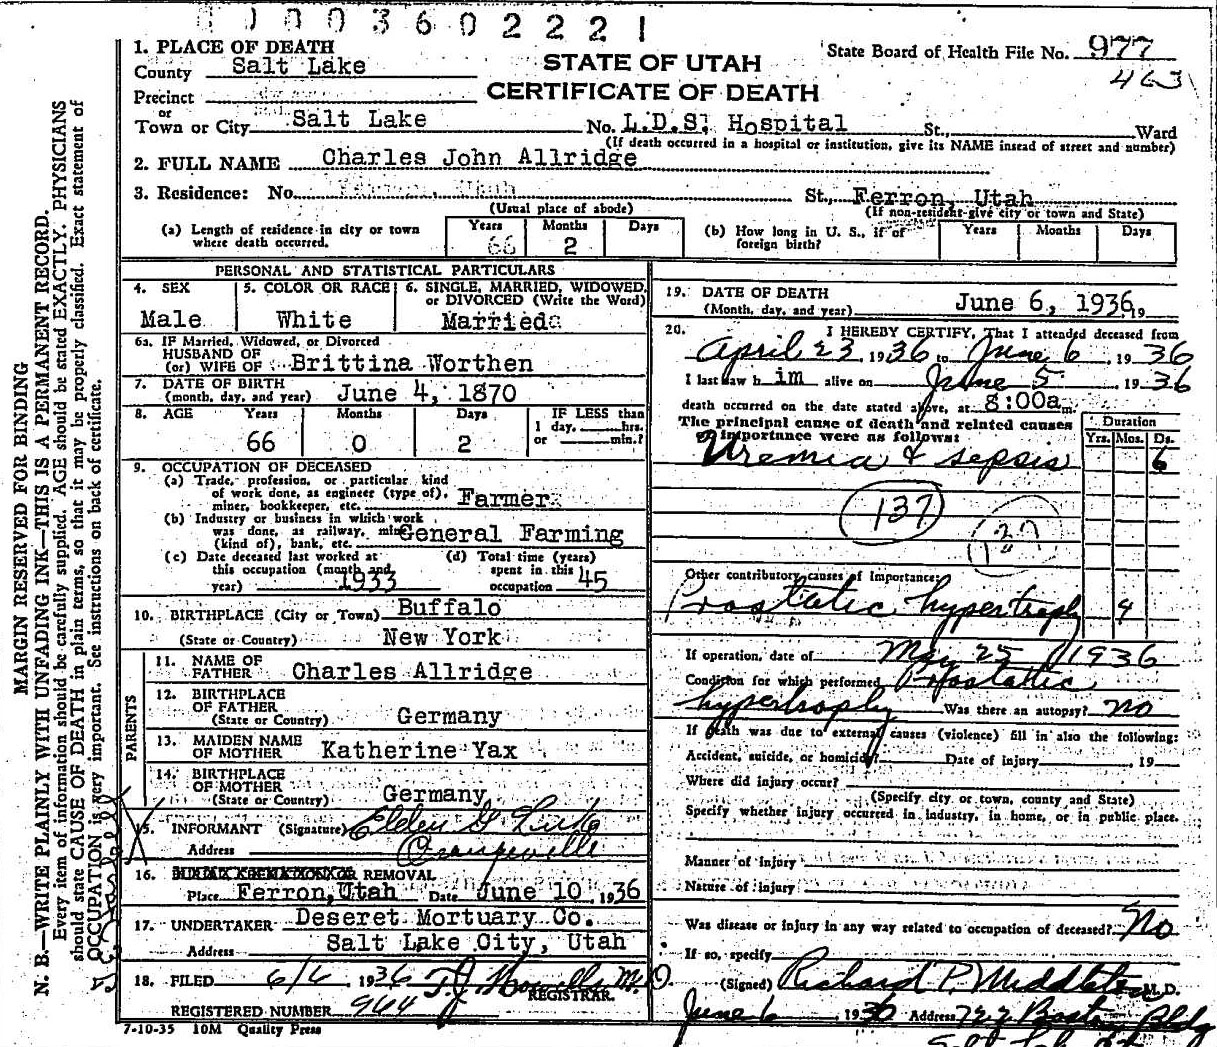 00003602221
1. PLACE OF DEATH
County Salt Lake
STATE OF UTAH
CERTIFICATE OF DEATH
State Board of Health File No. 977
463
Precinct
or
Town or City Salt Lake No. L.D.S. Hospital St., Ward
(If death occurred in a hospital or institution, give its NAME insead of street and number)
2. FULL NAME Charles John Allridge
3. Residence: No. St., Ferron, Utah
(Usual place of abode) (If non-resident give city or town and State)
(a) Length of residence in city or town where death occurred. Years 66 Months 2 Days
(b) How long in U. S., if of foreign birth? Years Months Days
PERSONAL AND STATISTICAL PARTICULARS
4. SEX Male
5. COLOR OR RACE White
6. SINGLE, MARRIED, WIDOWED, or DIVORCED (Write the Word) Married
6a. IF Married, Widowed, or Divorced
HUSBAND OF
(or) WIFE OF Brittina Worthen
7. DATE OF BIRTH
(month, day, and year) June 4, 1870
8. AGE Years 66 Months 0 Days 2 IF LESS than 1 day, hrs. or min.?
9. OCCUPATION OF DECEASED
(a) Trade, profession, or particular kind
of work done, as engineer (type of),
miner, bookkeeper, etc. Farmer
(b) Industry or business in which work
was done, as railway, mine
(kind of), bank, etc. General Farming
(c) Date deceased last worked at
this occupation (month and
year) 1933
(d) Total time (years)
spent in this
occupation 45
10. BIRTHPLACE (City or Town) Buffalo
(State or Country) New York
PARENTS
11. NAME OF
FATHER Charles Allridge
12. BIRTHPLACE
OF FATHER
(State or Country) Germany
13. MAIDEN NAME
OF MOTHER Katherine Yax
14. BIRTHPLACE
OF MOTHER
(State or Country) Germany
15. INFORMANT (Signature)
Address Orangeville
16. REMOVAL
Place Ferron, Utah Date June 10, 1936
17. UNDERTAKER Deseret Mortuary Co.
Address Salt Lake City, Utah
18. FILED 6/6 1936 T.J. Howells M.D.
REGISTRAR.
REGISTERED NUMBER 964
7-10-35 10M Quality Press
19. DATE OF DEATH
(Month, day, and year) June 6, 1936, 19
20. I HEREBY CERTIFY, That I attended deceased from
April 23, 1936 to June 6, 1936
I last saw him alive on June 5 1936
death occurred on the date stated above, at 8:00a m.
The principal cause of death and related causes
of importance were as follows:
Duration
Yrs. Mos. Ds.
Uremia & sepsis 6
137
137
Other contributory causes of Importance:
Prostatic hypertrophy 4
If operation, date of May 25 1936
Condition for which performed Prostatic
hypertrophy Was there an autopsy? no
If death was due to external causes (violence) fill in also the following:
Accident, suicide, or homicide? Date of injury , 19
Where did injury occur?
(Specify city or town, county and State)
Specify whether injury occurred in industry, in home, or in public place.
Manner of injury
Nature of injury
Was disease or injury in any way related to occupation of deceased? No
If so, specify
(Signed) Richard P. Middleton M.D.
June 6 1936 Address 722 Boston Bldg
MARGIN RESERVED FOR BINDING
N. B.—WRITE PLAINLY WITH UNFADING INK—THIS IS A PERMANENT RECORD.
Every item of information should be carefully supplied. AGE should be stated EXACTLY. PHYSICIANS
should state CAUSE OF DEATH in plain terms, so that it may be properly classified. Exact statement of
OCCUPATION is very important. See instructions on back of certificate.